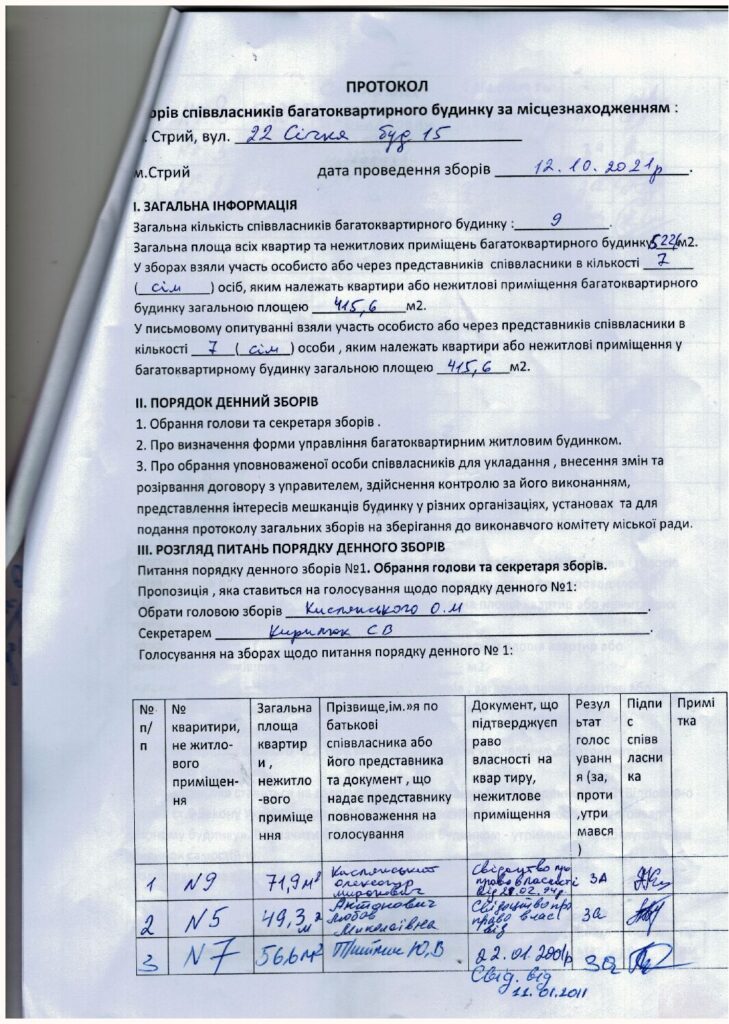 ПРОТОКОЛ
орів співвласників багатоквартирного будинку за місцезнаходженням :
. Стрий, вул. 22 Січня буд 15
м.Стрий дата проведення зборів 12.10.2021р.
І. ЗАГАЛЬНА ІНФОРМАЦІЯ
Загальна кількість співвласників багатоквартирного будинку : 9.
Загальна площа всіх квартир та нежитлових приміщень багатоквартирного будинку м2.
У зборах взяли участь особисто або через представників співвласники в кількості 7
( сім ) осіб, яким належать квартири або нежитлові приміщення багатоквартирного
будинку загальною площею 415,6 м2.
У письмовому опитуванні взяли участь особисто або через представників співвласники в
кількості 7 ( сім ) особи , яким належать квартири або нежитлові приміщення у
багатоквартирному будинку загальною площею 415,6 м2.
ІІ. ПОРЯДОК ДЕННИЙ ЗБОРІВ
1. Обрання голови та секретаря зборів .
2. Про визначення форми управління багатоквартирним житловим будинком.
3. Про обрання уповноваженої особи співвласників для укладання , внесення змін та
розірвання договору з управителем, здійснення контролю за його виконанням,
представлення інтересів мешканців будинку у різних організаціях, установах та для
подання протоколу загальних зборів на зберігання до виконавчого комітету міської ради.
ІІІ. РОЗГЛЯД ПИТАНЬ ПОРЯДКУ ДЕННОГО ЗБОРІВ
Питання порядку денного зборів №1. Обрання голови та секретаря зборів.
Пропозиція , яка ставиться на голосування щодо порядку денного №1:
Обрати головою зборів О.М.
Секретарем С В.
Голосування на зборах щодо питання порядку денного № 1:
№ п/п
№ кваритири, не житло-вого приміщен-ня
Загальна площа квартир и , нежитло-вого приміще ння
Прізвище,ім.»я по батькові співвласника або його представника та документ , що надає представнику повноваження на голосування
Документ, що підтверджуєп раво власності на квар тиру, нежитлове приміщення
Резул ьтат голос уванн я (за, проти ,утри мався )
Підпи с співв ласни ка
Примі тка
1 N9 71,9 м² Олександр Миронович Свідоцтво про право власності від за
2 N5 49,3 м² Антонович Любов Миколаївна Свідоцтво про право влас від за
3 N7 56,6 м² Ю.В 22.01.2001р за
Свід. від
11.01.2011